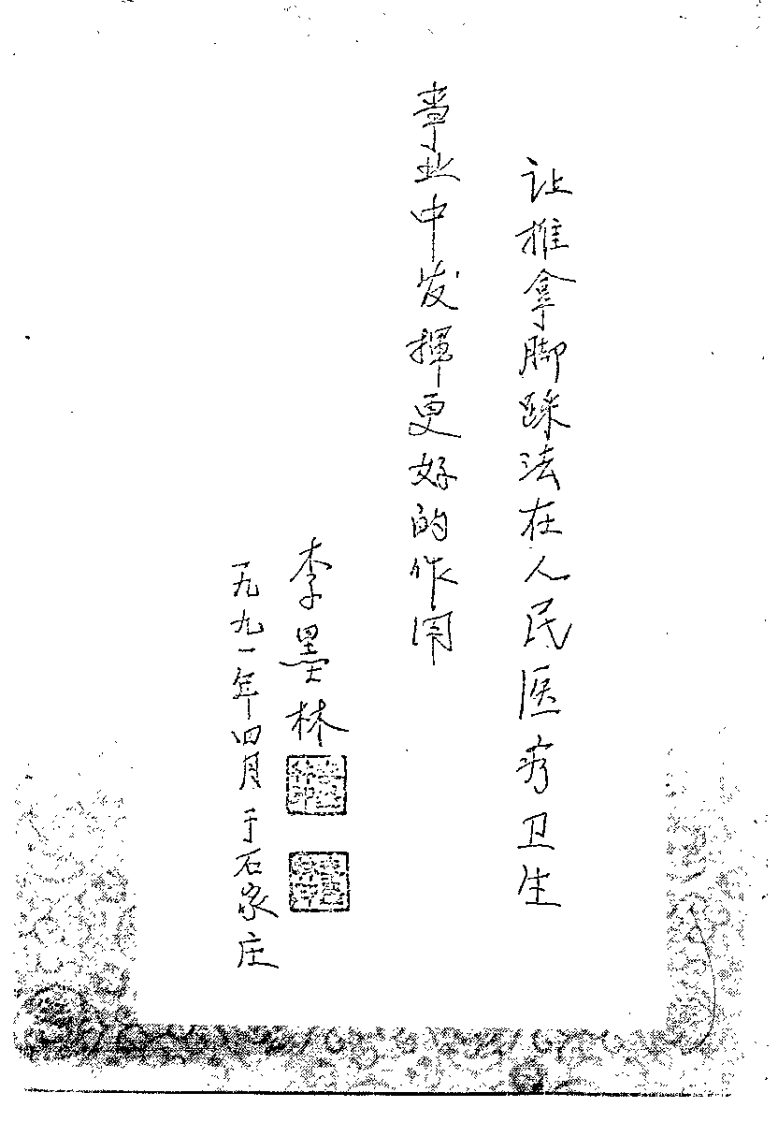 让推拿脚踩法在人民医疗卫生
事业中发挥更好的作用
李墨林
一九九一年四月于石家庄